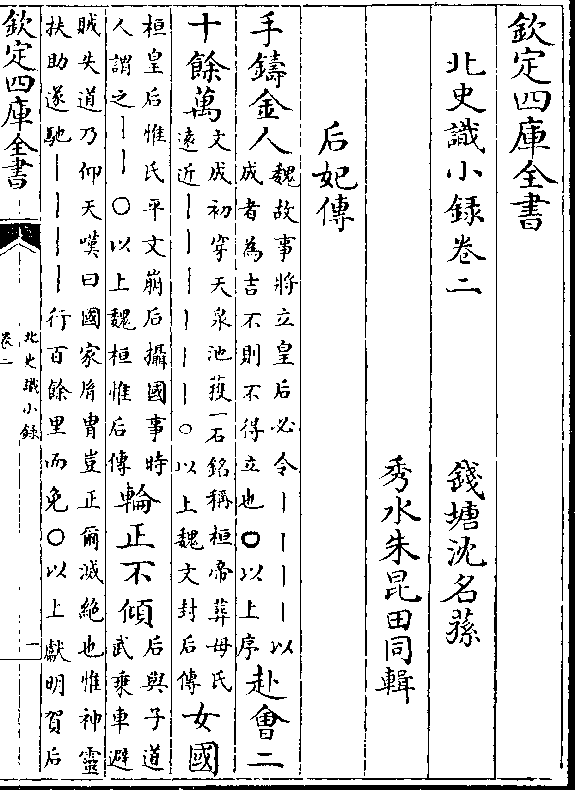 欽定四庫全書
北史識小錄卷二　錢塘沈名蓀
秀水朱昆田同輯
后妃傳
手鑄金人
魏故事將立皇后必令丨丨丨丨以
成者為吉不則不得立也○以上序
赴會二
十餘萬
文成初穿天泉池獲一石銘稱桓帝葬母氏
遠近丨丨丨丨丨○以上魏文封后傳
女國
桓皇后惟氏平文崩后攝國事時
人謂之丨丨○以上魏桓惟后傳
輪正不傾
后與子道
武乘車避
賊失道乃仰天嘆曰國家胤胄豈正爾滅絕也惟神靈
扶助遂馳丨丨丨丨行百餘里而免○以上獻明賀后
欽定四庫全書
北史識小錄
卷二
一